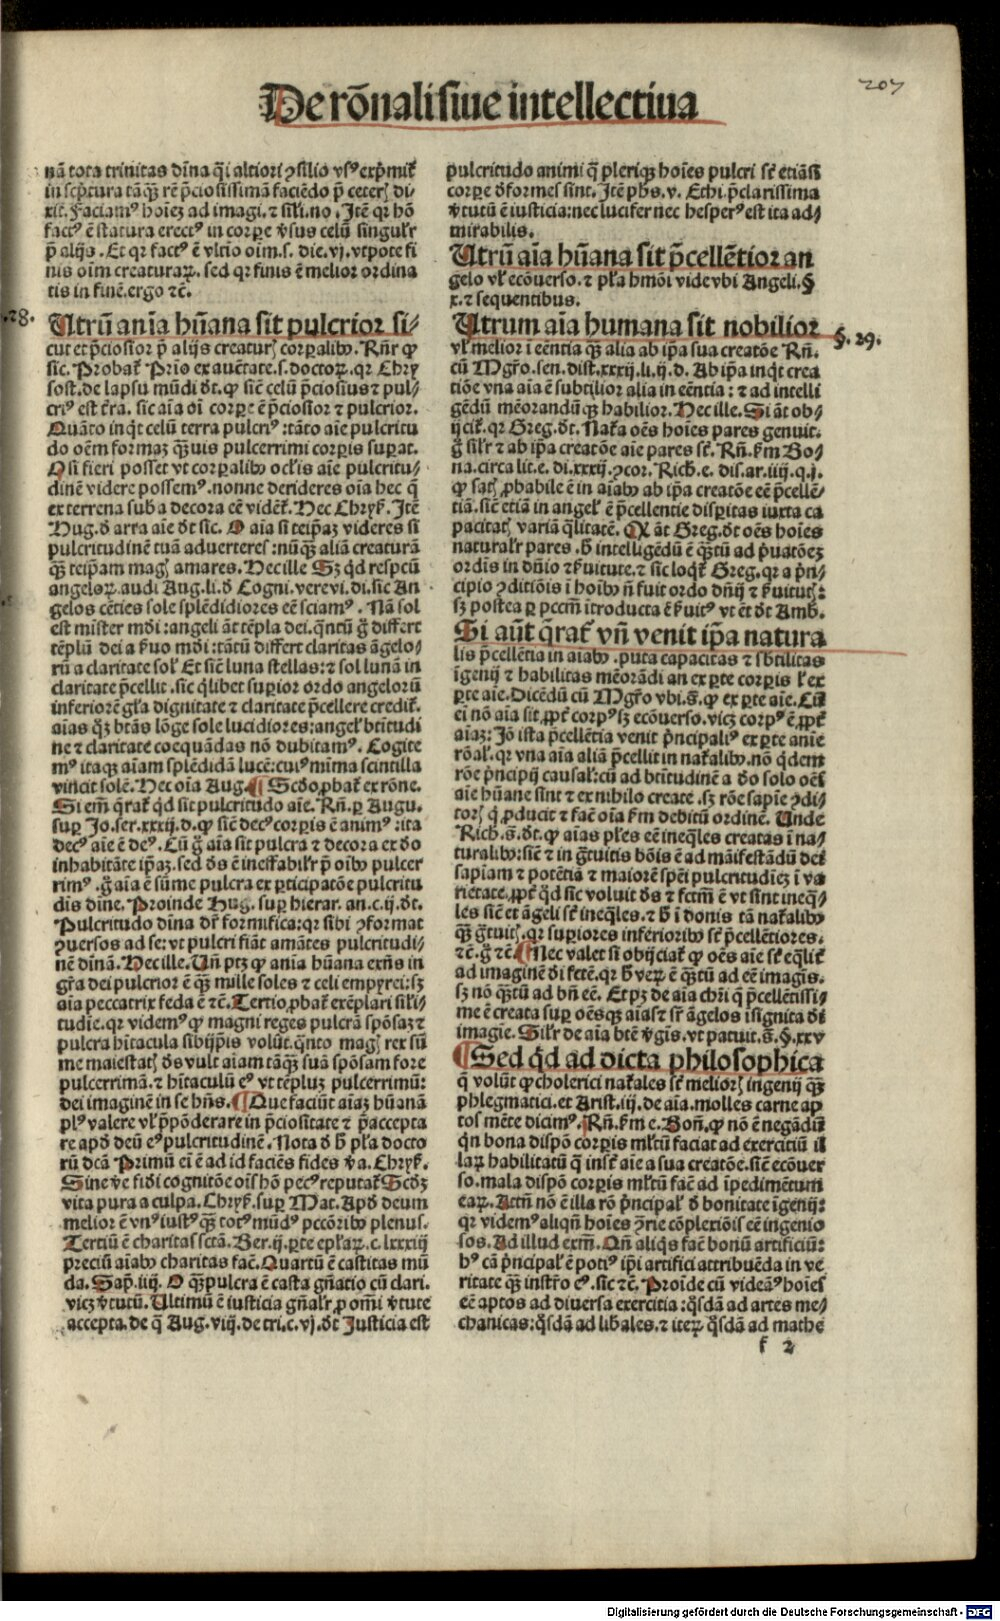 207
De rōnali siue intellectiua
nā tota trinitas dīna q̄i altiori ꝯsilio vsꝰ exp̄mit᷑
in sc̄ptura tāq̄ꝫ rē p̄ciosissimā faciēdo p̄ ceteris di
xit. Faciamꝰ hoīeꝫ ad imagi. ⁊ sil̄i. no. Itē qr hō
factꝰ ē statura erectꝰ in corꝑe v̓sus celū singul̄r
p̄ alijs. Et qr factꝰ ē vltīo oīm .s. die .vj. vtpote fi
nis oīm creaturaꝝ. sed qr finis ē melior ordina
tis in finē. ergo ⁊c̄.
.28.
Utrū anīa hūana sit pulcrior si/
cut et p̄ciosior p̄ alijs creaturis corꝑalibꝰ. Rn̄r ꝙ
sic. Probat᷑ Prīo ex auc̄tate .s. doctoꝝ. qr Chry
sost. de lapsu mūdi dt̄. ꝙ sic̄ celū p̄ciosiꝰ ⁊ pul-
criꝰ est t̄ra. sic aīa oī corꝑe ē p̄ciosior ⁊ pulcrior.
Quāto inq̄t celū terra pulcriꝰ: tāto aīe pulcritu
do oēm formaꝫ q̄ꝫuis pulcerrimi corꝑis suꝑat.
Qsi fieri posset vt corꝑalibꝰ ocl̄is aīe pulcritu/
dinē videre possemꝰ. nonne derideres oīa hec q̄
ex terrena suba decora eē vident᷑. Hec Chrys. Itē
Hug. d̓ arra aīe dt̄ sic. O aīa si teip̄aꝫ videres si
pulcritudinē tuā aduerteres: nūq̄ꝫ aliā creaturā
q̄ꝫ teip̄am magis amares. Hec ille Sꝫ qd respcū
angeloꝝ. audi Aug. li. d̓ Cogni. vere vi. di. sic An
gelos cēties sole splēdidiores eē sciamꝰ. Nā sol
est mīster mōi: angeli āt tēpla dei. q̄ntū ḡ differt
tēplū dei a s̓uo mōi: tātū differt claritas āgelo-
rū a claritate sol̄ Et sic̄ luna stellas: ⁊ sol lunā in
claritate p̄cellit. sic q̄libet suꝑior ordo angeloꝝ
inferiorē gl̄a dignitate ⁊ claritate p̄cellere credit᷑.
aīas q̄ꝫ btās lōge sole lucidiores: angel̄ btītudi
ne ⁊ claritate coequādas nō dubitamꝰ. Cogite
mꝰ itaqꝫ aīam splēdidā lucē: cuiꝰ mīma scintilla
vincit solē. Hec oīa Aug. ¶ Scdo, ꝓbat᷑ ex rōne.
Si em̄ q̄rat᷑ qd sit pulcritudo aīe. Rn̄. ꝑ Augu.
suꝑ Jo. ser. xxxij. d. ꝙ sic̄ decꝰ corꝑis ē animꝰ: ita
decꝰ aīe ē deꝰ. Cū ḡ aīa sit pulcra ⁊ decora ex deo
inhabitāte ip̄aꝫ. sed dꝰ ē ineffabil̄r p̄ oībꝰ pulcer
rimꝰ. ḡ aīa ē sūme pulcra ex ꝑticipatōe pulcritu
dis dīne. Proinde Hug. suꝑ hierar. an. c. ij. dt̄.
Pulcritudo dīna dr̄ formifica: qr sibi ꝯformat
ꝯuersos ad se: vt pulcri fiāt amātes pulcritudi/
nē dīnā. Hec ille. Un̄ ptꝫ ꝙ anīa hūana exn̄s in
gr̄a dei pulcrior ē q̄ꝫ mille soles ⁊ celi empyrei: sꝫ
aīa peccatrix feda ē ⁊c̄. Tertio, ꝓbat᷑ exēplari sil̄i-
tudīe. qr videmꝰ ꝙ magni reges pulcrā spōsaꝫ ⁊
pulcra hitacula sibijpīs volūt. q̄nto magis rex sū
me maiestatis dꝰ vult aīam tāq̄ꝫ suā spōsam fore
pulcerrimā. ⁊ hitaculū eꝰ vt tēpluꝫ pulcerrimū:
dei imaginē in se hn̄s. ¶ Que faciūt aīaꝫ hūanā
plꝰ valere vl̄ p̄pōderare in p̄ciositate ⁊ p̄ accepta
re apd̓ deū eꝰ pulcritudinē. Nota d̓ h̄ pl̄a docto
rū dcā Primū ei ē ad id faciēs fides v̓a. Chrys.
Sine v̓e fidi cognitōe oīs hō pecꝰ reputat᷑ Scdꝫ
vita pura a culpa. Chrys. suꝑ Mat. Apd̓ deum
melior ē vnꝰ iustꝰ q̄ꝫ totꝰ mūdꝰ pccōribꝰ plenꝰ.
Tertiū ē charitas sctā. Ber. ij. ꝑte epl̄aꝝ. c. lxxxiij
preciū aīabꝰ charitas fac̄. Quartū ē castitas mū
da. Sap. iiij. O q̄ꝫ pulcra ē casta gn̄atio cū clari.
vicꝫ v̓tutū. Ultimū ē iusticia gn̄al̄r ꝓ omni v̓tute
accepta. de q̄ Aug. viij. de tri. c. vj. dt̄ Justicia est
pulcritudo animi q̄ pleriqꝫ hoīes pulcri st̄ etiāsi
corꝑe d̓formes sint. Itē ph̄s. v. Ethi. p̄clarissima
v̓tutū ē iusticia: nec lucifer nec hesperꝰ est ita ad/
mirabilis.
Utrū aīa hūana sit p̄cellētior an
gelo vl̄ ecōuerso. ⁊ pl̄a hmōi vide vbi Angeli. §
x. ⁊ sequentibus.
Utrum aīa humana sit nobilior
§. 29.
vl̄ melior ī eēntia q̄ꝫ alia ab ip̄a sua creatōe Rn̄.
cū Mgr̄o. sen. dist. xxxij. li. ij. d. Ab ip̄a inq̄t crea
tiōe vna aīa ē subtilior alia in eēntia: ⁊ ad intelli
gēdū mēorandūqꝫ habilior. Hec ille. Si āt ob/
ijcit᷑. qr Greg. dt̄. Nat᷑a oēs hoīes pares genuit.
ḡ sil̄r ⁊ ab ip̄a creatōe aīe pares st̄. Rn̄. s̄m Bo/
na. circa lit. e. di. xxxij. ꝯcor. Rich. e. dis. ar. iiij. q. j.
ꝙ satis ꝓbabile ē in aīabꝰ ab ip̄a creatōe eē p̄cellē-
tiā. sic̄ etiā in angel̄ ē p̄cellentie disꝑitas iuxta ca
pacitatis variā q̄litatē. Qd̓ āt Greg. dt̄ oēs hoīes
natural̄r pares. h̄ intelligēdū ē q̄ꝫtū ad p̓uatōeꝫ
ordīs in dn̄io ⁊ s̓uitute. ⁊ sic loqt᷑ Greg. qr a p̓n/
cipio ꝯditiōis ī hoībꝰ n̄ fuit ordo dn̄ij ⁊ s̓uitutis:
sꝫ postea ꝑ pccm̄ ītroducta ē s̓uitꝰ vt ēt dt̄ Amb.
Si aūt q̄rat᷑ vn̄ venit ip̄a natura
lis p̄cellētia in aīabꝰ. puta capacitas ⁊ sbtilitas
īgenij ⁊ habilitas mēorādi an ex ꝑte corꝑis l̄ ex
ꝑte aīe. Dicēdū cū Mgr̄o vbi .s̄. ꝙ ex ꝑte aīe. Cū
ei nō aīa sit ꝓpt̄ corpꝰ sꝫ ecōuerso. vicꝫ corpꝰ ē ꝓpt̄
aīaꝫ: Jō ista p̄cellētia venit p̓ncipaliꝰ ex ꝑte anīe
rōal̄. qr vna aīa aliā p̄cellit in nat᷑alibꝰ. nō q̄dem
rōe p̓ncipij causal̄: cū ad btītudinē a deo solo oēs
aīe hūane sint ⁊ ex nihilo create. sꝫ rōe sapīe ꝯdi-
toris q̄ ꝓducit ⁊ fac̄ oīa s̄m debitū ordinē. Unde
Rich. s̄. dt̄. ꝙ aīas pl̄es eē ineq̄les creatas ī na-
turalibꝰ: sic̄ ⁊ in gr̄tuitis bōis ē ad māifestādū dei
sapīam ⁊ potētiā ⁊ maiorē spēi pulcritudīeꝫ ī va
rietate. ꝓpt̄ qd̓ sic voluit dꝰ ⁊ fctm̄ ē vt sint ineq̄-
les sic̄ et āgeli st̄ ineq̄les. ⁊ h̄ ī donis tā nat᷑alibꝰ
q̄ꝫ gr̄tuitis. qr suꝑiores inferioribꝰ st̄ p̄cellētiores.
⁊c̄. ḡ ⁊c̄. ¶ Nec valet si obijciat᷑ ꝙ oēs aīe st̄ eq̄lit̄
ad imaginē di fctē. qr h̄ veꝝ ē q̄ꝫtū ad eē imagīs.
sꝫ nō q̄ꝫtū ad bn̄ eē. Et pꝫ de aīa chr̄i q̄ p̄cellētissi-
me ē creata suꝑ oēsqꝫ aīas ⁊ st̄ āgelos īsignita di
imagīe. Sil̄r de aīa btē v̓gīs. vt patuit .s̄. §. xxv
¶ Sed qd̓ ad dicta philosophica
q̄ volūt ꝙ cholerici nat᷑ales st̄ melioris ingenij q̄ꝫ
phlegmatici. et Arist. iij. de aīa. molles carne ap
tos mēte dicimꝰ. Rn̄. s̄m e. Bon̄. ꝙ nō ē negādū
qn bona dispō corꝑis ml̄tū faciat ad exercitiū il
laꝝ habilitatū q̄ inst̄ aīe a sua creatōe. sic̄ ecōuer
so. mala dispō corꝑis ml̄tū fac̄ ad īpedimētum
eaꝝ. Attn̄ nō ē illa rō p̓ncipal̄ d̓ bonitate īgenij:
qr videmꝰ aliqn̄ hoīes ꝯrie cōplexiōis eē ingenio
sos. Ad illud exm̄. Qn̄ aliqs fac̄ bonū artificiū:
hꝰ cā p̓ncipal̄ ē potiꝰ ip̄i artifici attribuēda in ve
ritate q̄ꝫ instr̄o eꝰ. sic ⁊c̄. Proīde cū videāꝰ hoīes
eē aptos ad diuersa exercitia: qsdā ad artes me/
chanicas: qsdā ad lib̄ales. ⁊ iteꝝ qsdā ad mathe
f 2
Digitalisierung gefördert durch die Deutsche Forschungsgemeinschaft - DFG